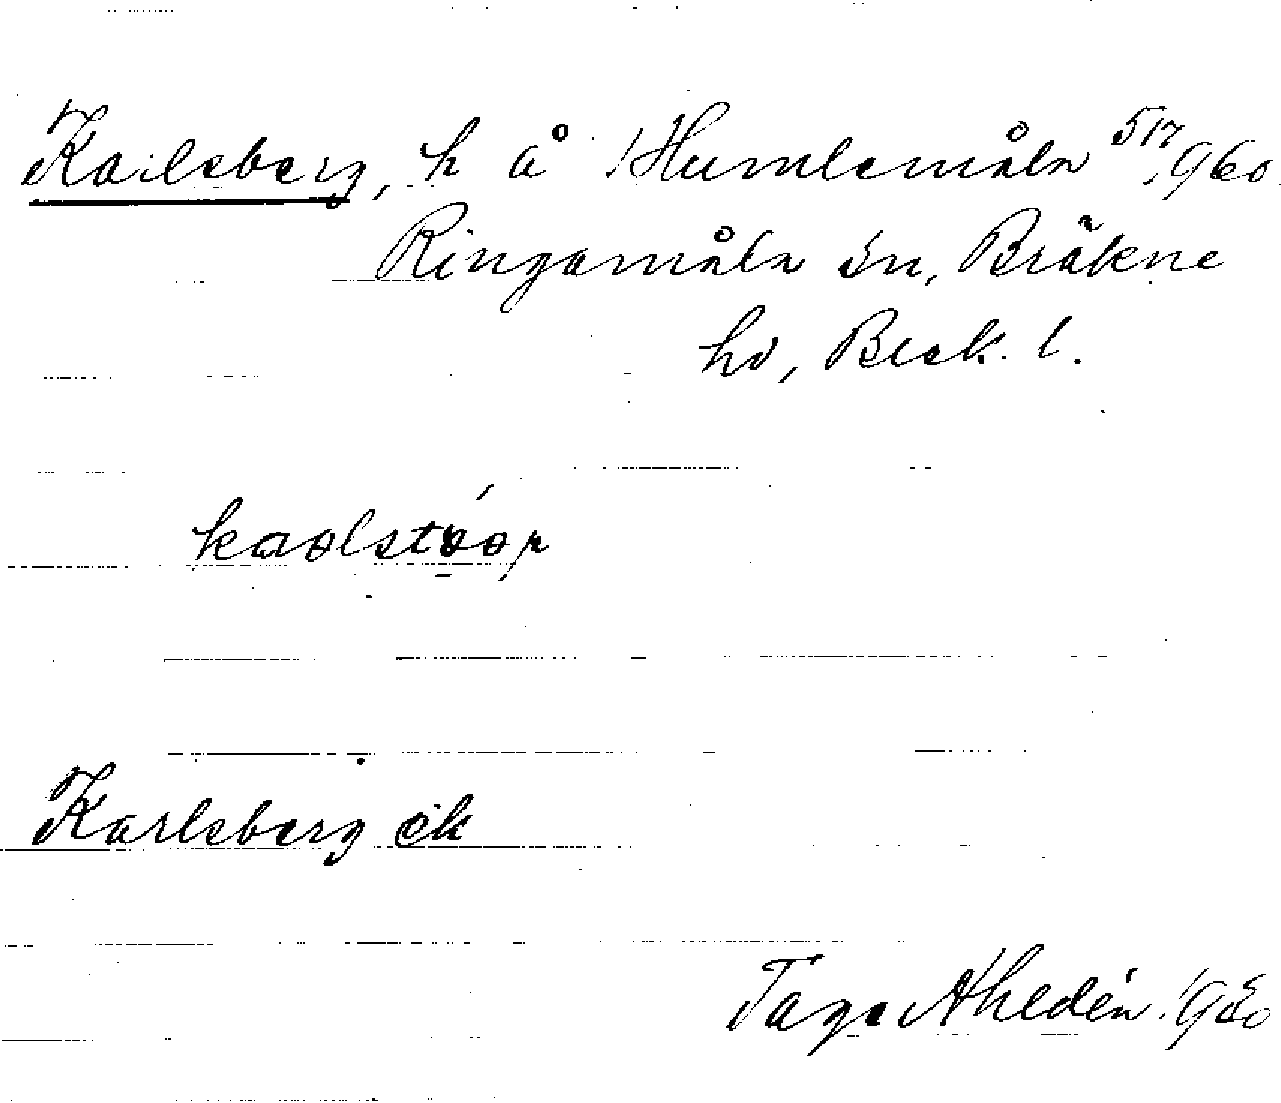 Karlsberg, h å Humlemåla 517/960
Ringamåla sn, Bräkne
hd, Blek. l.
Karlsberg ek
Tage Ahldén 1950